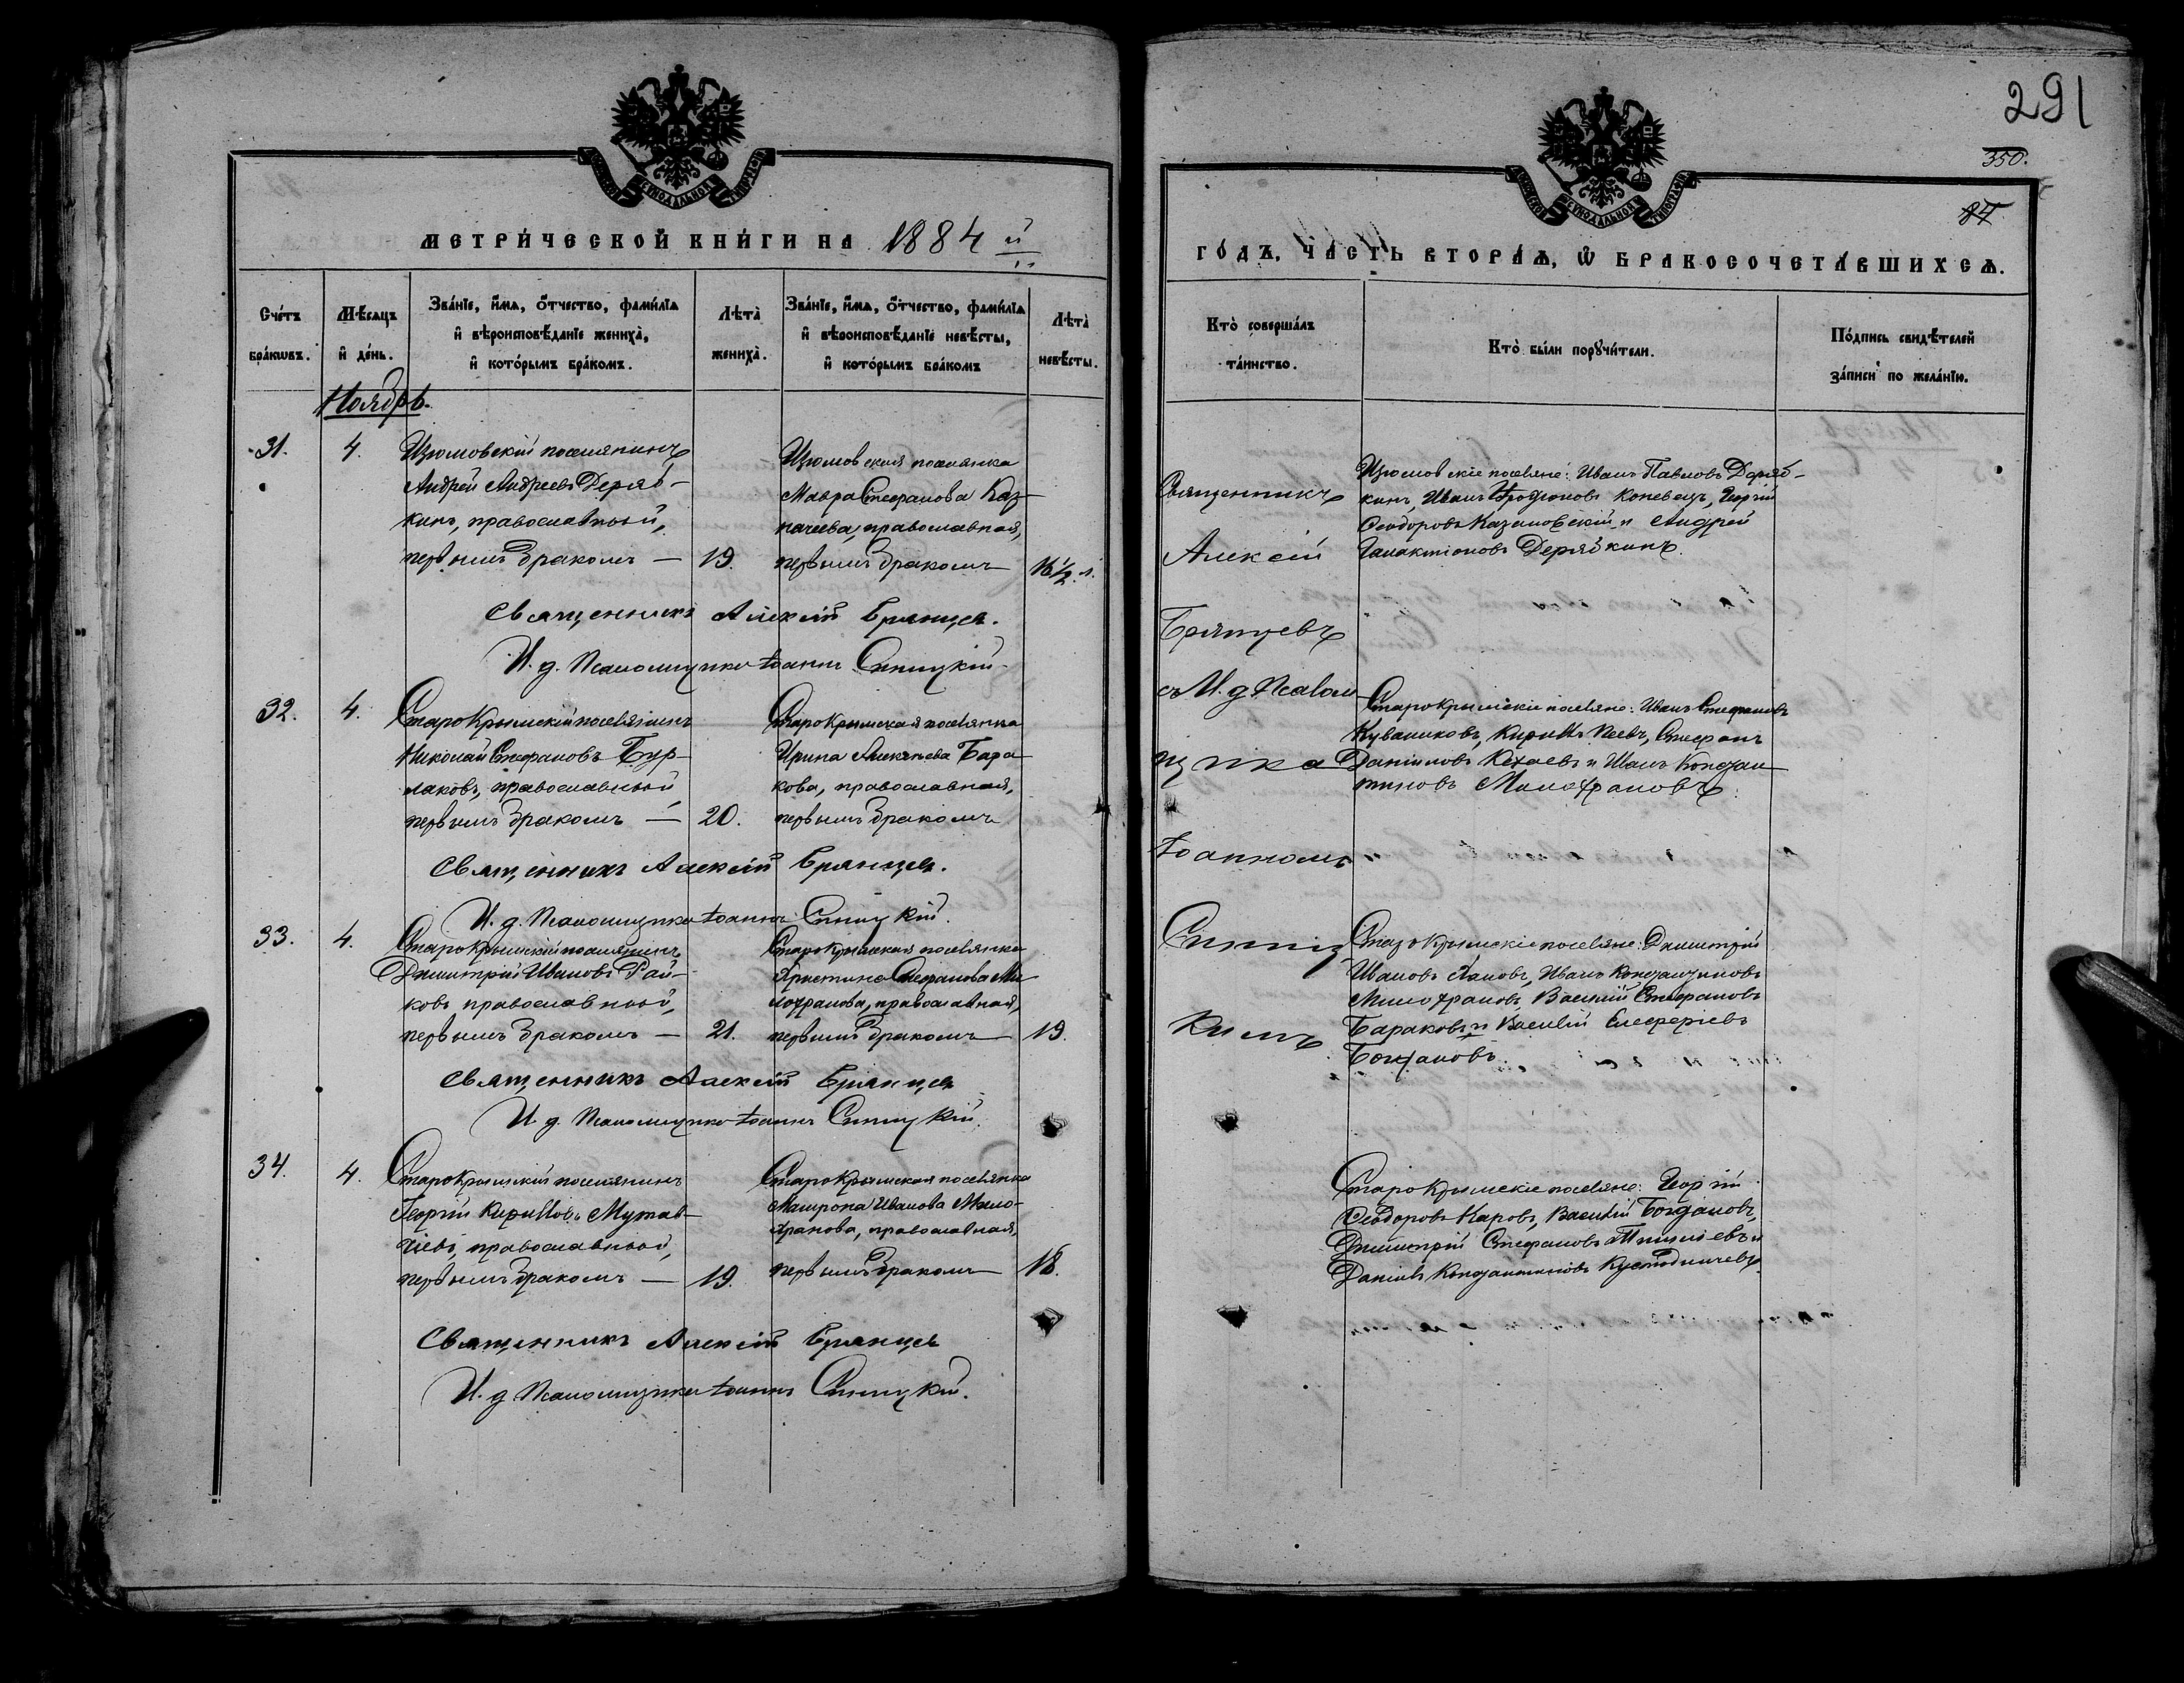 МЕТРИ́ЧЕСКОЙ КНИ́ГИ НА 1884 й
Сче́тъ бра́кωвъ.
Мѣ́сяцъ и҆ де́нь.
Зва́нїе, и҆́мѧ, ѻ҆́тчество, фами́лїѧ
и҆ вѣроисповѣ́данїе жениха̀,
и҆ кото́рымъ бра́комъ.
Лѣта̀ жениха̀.
Зва́нїе, и҆́мѧ, ѻ҆́тчество, фами́лїѧ
и҆ вѣроисповѣ́данїе невѣ́сты,
и҆ кото́рымъ бра́комъ
Лѣта̀ невѣ́сты.
Ноябрь.
31. 4. Изюмовскій поселянинъ
Андрей Андреевъ Деряб-
кинъ, православный,
первымъ бракомъ — 19.
Изюмовская поселянка
Мавра Стефанова Каз-
начеева, православная,
первымъ бракомъ — 16 1/2 л.
Священникъ Алексій Брянцев.
И. д. Псаломщика Іоаннъ Синицкій.
32. 4. Старокрымскій поселянинъ
Николай Стефановъ Бур-
лаковъ, православный
первымъ бракомъ — 20.
Старокрымская поселянка
Ирина Алексѣева Бара-
кова, православная,
первымъ бракомъ
Священникъ Алексій Брянцев.
И. д. Псаломщика Іоаннъ Синицкій.
33. 4. Старокрымскій поселянинъ
Дмитрій Ивановъ Рай-
ковъ православный,
первымъ бракомъ — 21.
Старокрымская поселянка
Христина Стефанова Ми-
лофанова, православная,
первымъ бракомъ — 19.
Священникъ Алексій Брянцев
И. д. Псаломщика Іоаннъ Синицкій.
34. 4. Старокрымскій поселянинъ
Георгій Кирилловъ Мутав-
чіевъ, православный,
первымъ бракомъ — 19.
Старокрымская поселянка
Матрона Иванова Мило-
фанова, православная,
первымъ бракомъ — 18.
Священникъ Алексій Брянцев
И. д. Псаломщика Іоаннъ Синицкій.
291
350.
87
ГО́ДЪ, ЧА́СТЬ ВТОРА́Ѧ, Ѽ БРАКОСОЧЕТА́ВШИХСѦ.
Кто̀ соверша́лъ та́инство.
Кто̀ бы́ли порꙋчи́тели.
По́дпись свидѣ́телей за́писи по жела́нїю.
Священникъ
Алексій
Брянцевъ
съ И. д Псалом
щика
Іоанномъ
Синиц
кимъ
Изюмовскіе поселяне: Иванъ Павловъ Деряб-
кинъ, Иванъ Коневецъ, Георгій
Ѳеодоровъ Казановскій и Андрей
Галактіоновъ Дерябкинъ.
Старокрымскіе поселяне: Иванъ Стефановъ
Куванжовъ, Кириллъ Пеевъ, Стефанъ
Даніиловъ Кехаевъ и Иванъ Констан-
тиновъ Милофановъ.
Старокрымскіе поселяне: Дмитрій
Ивановъ Пановъ, Иванъ Константиновъ
Милофановъ, Василій Стефановъ
Бараковъ и Василій Елеферіевъ
Богдановъ.
Старокрымскіе поселяне: Георгій
Ѳеодоровъ Каровъ, Василій Богдановъ,
Дмитрій Стефановъ и
Даніилъ Константиновъ